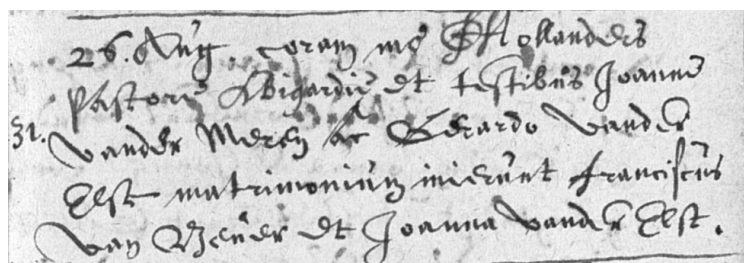 26. Aug. coram me Hollanders
Pastore Bigardis et testibus Joanne
31. vander Meren ac Gerardo vander
Elst matrimonium inierunt franciscus
van et Joanna vander Elst.